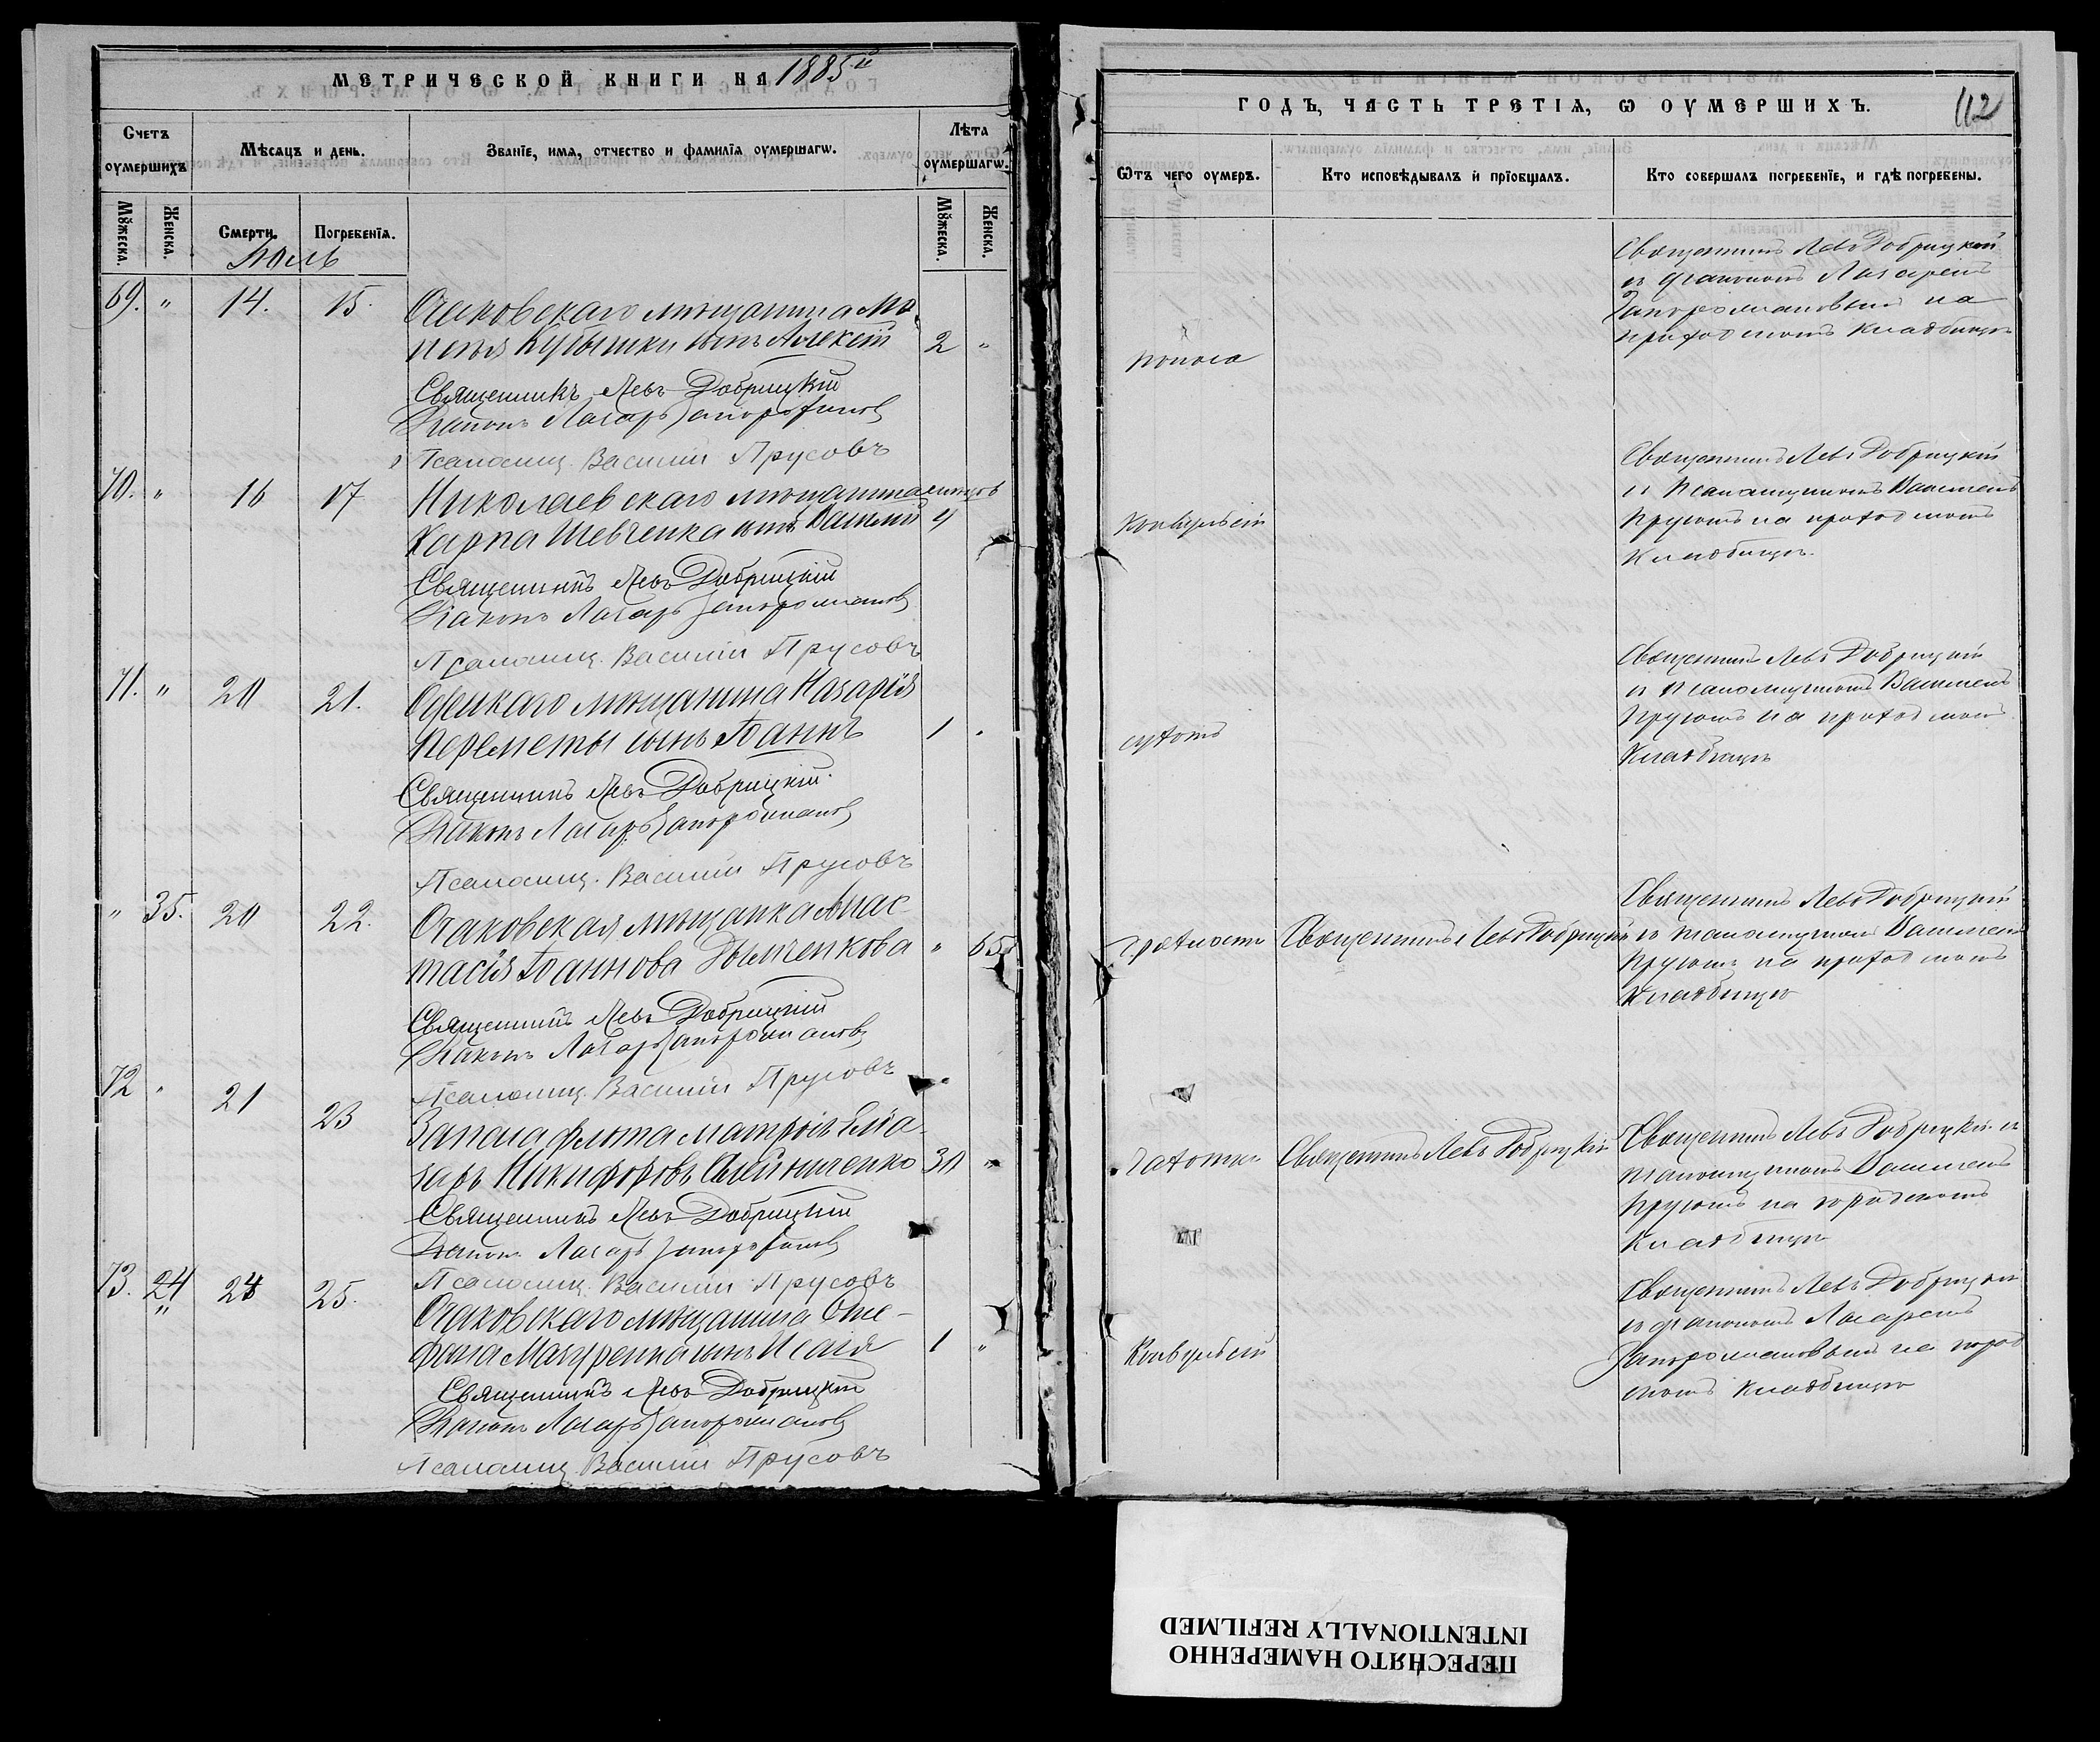 МЕТРИЧЕСКОЙ КНИГИ НА 1885й
Счетъ оумершихъ
Мѣсяцъ и день.
Званіе, имя, отчество и фамилія оумершагѡ.
Лѣта оумершагѡ.
Мꙋжеска.
Женска.
Смерти.
Погребенія.
Мꙋжеска.
Женска.
Июль
69. " 14. 15.
Очаковскаго мѣщанина
Кубышки сынъ Алексій 2 "
Священникъ Левъ Добрицкій
Діаконъ Лазарь
Псаломщ. Василій Прусовъ
70. " 16 17
Николаевскаго мѣщанина
Карпа Шевченка сынъ Василій 4
Священникъ Левъ Добрицкій
Діаконъ Лазарь
Псаломщ. Василій Прусовъ
71. " 20 21.
Одескаго мѣщанина Назарія
Переметы сынъ Іоаннъ 1 "
Священникъ Левъ Добрицкій
Діаконъ Лазарь
Псаломщ. Василій Прусовъ
" 35. 20 22.
Очаковская мѣщанка Анас-
тасія Іоаннова " 65
Священникъ Левъ Добрицкій
Діаконъ Лазарь
Псаломщ. Василій Прусовъ
72 " 21 23
Запаса флота матросъ Ела-
зарь Никифоровъ 30 "
Священникъ Левъ Добрицкій
Діаконъ Лазарь
Псаломщ. Василій Прусовъ
73. 24 " 24 25.
Очаковскаго мѣщанина
Мазуренка сынъ Исаія 1 "
Священникъ Левъ Добрицкій
Діаконъ Лазарь
Псаломщ. Василій Прусовъ
ГОДЪ, ЧАСТЬ ТРЕТІЯ, Ѡ ОУМЕРШИХЪ.
112
Ѿтъ чего оумеръ.
Кто исповѣдывалъ и пріобщалъ.
Кто совершалъ погребеніе, и гдѣ погребены.
поноса
Священникъ Левъ Добрицкій
съ діакономъ Лазаремъ
на
приходскомъ кладбищѣ
Конвульсій
Священникъ Левъ Добрицкій
съ псаломщикомъ Василіемъ
Прусовымъ на приходскомъ
Кладбищѣ.
сухотъ
Священникъ Левъ Добрицкій
съ псаломщикомъ Василіемъ
Прусовымъ на приходскомъ
Кладбищѣ
Священникъ Левъ Добрицкій
Священникъ Левъ Добрицкій
съ псаломщикомъ Василіемъ
Прусовымъ на приходскомъ
Кладбищѣ
Чахотки
Священникъ Левъ Добрицкій
Священникъ Левъ Добрицкій съ
псаломщикомъ Василіемъ
Прусовымъ на городскомъ
Кладбищѣ
Конвульсій
Священникъ Левъ Добрицкій
съ діакономъ Лазаремъ
на город
скомъ кладбищѣ
ПЕРЕСНЯТО НАМЕРЕННО
INTENTIONALLY REFILMED